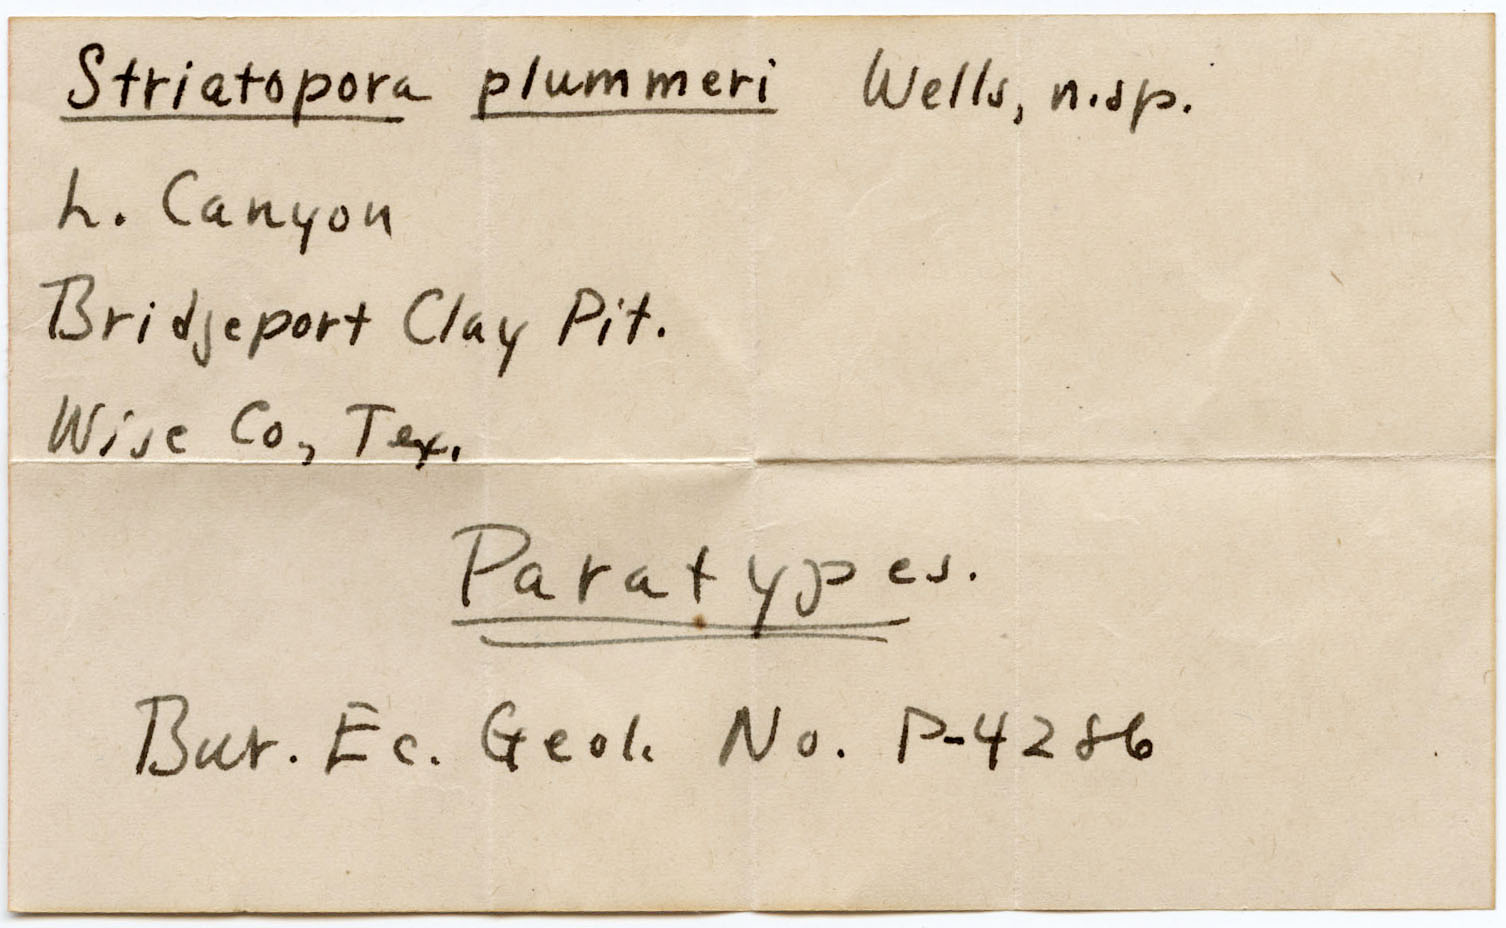 Striatopora plummeri Wells, n.sp.
L. Canyon
Bridgeport Clay Pit.
Wise Co., Tex.
Paratypes.
Bur. Ec. Geol. No. P-4286